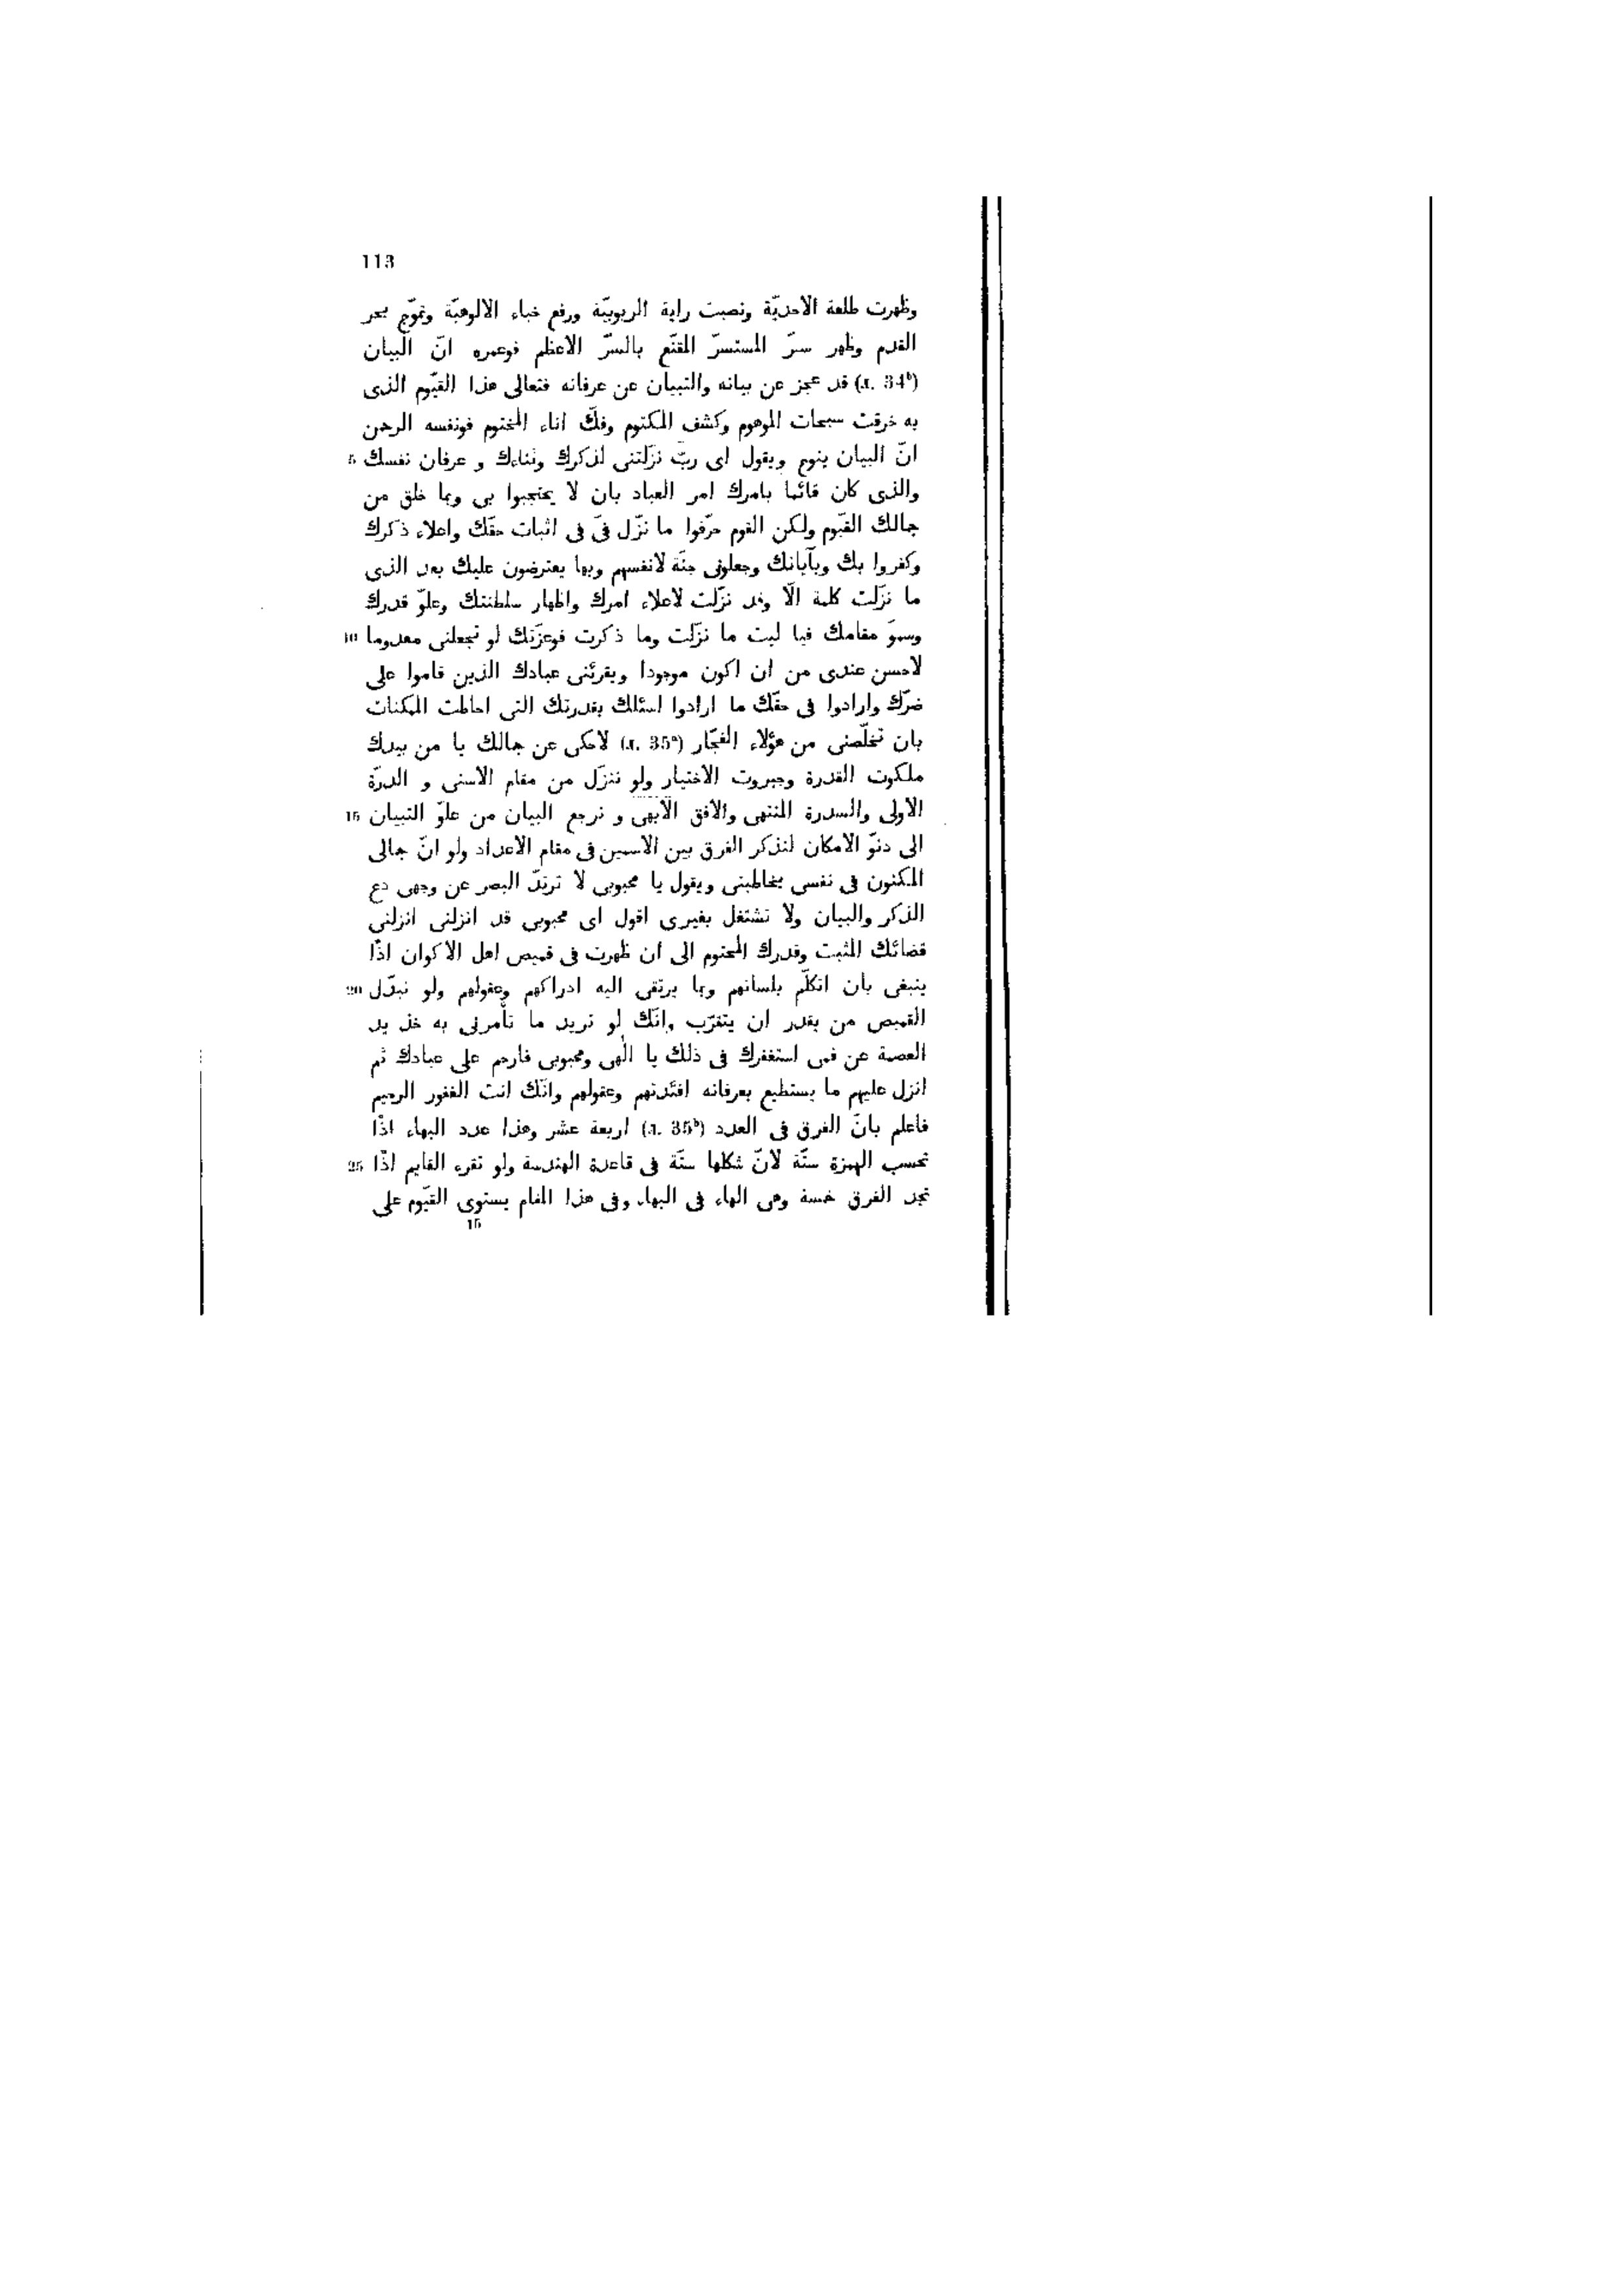 113
وظهرت طلعة الاحديّة ونصبت راية الربوبيّة ورفع خباء الالوهيّة وتموّج بحر
القدم وظهر سرّ المستسرّ المقنّع بالسرّ الاعظم فوعمره انّ البيان
(л. 34ᵇ) قد عجز عن بيانه والتبيان عن عرفانه فتعالى هذا القيّوم الذى
به خرقت سبحات الموهوم وكشف المكتوم وفكّ اناء المختوم فونفسه الرحمن
انّ البيان ينوح ويقول اى ربّ نزّلتنى لذكرك وثناءك و عرفان نفسك 5
والذى كان قائما بامرك امر العباد بان لا يحتجبوا بى وبما خلق من
جمالك القيّوم ولكن القوم حرّفوا ما نزّل فىّ فى اثبات حقّك واعلاء ذكرك
وكفروا بك وبآياتك وجعلونى جنّة لانفسهم وبها يعترضون عليك بعد الذى
ما نزّلت كلمة الّا وقد نزّلت لاعلاء امرك واظهار سلطنتك وعلوّ قدرك
وسموّ مقامك فيا ليت ما نزّلت وما ذكرت فوعزّتك لو تجعلنى معدوما 10
لاحسن عندى من ان اكون موجودا ويقرئنى عبادك الذين قاموا على
ضرّك وارادوا فى حقّك ما ارادوا اسئلك بقدرتك التى احاطت الممكنات
بان تخلّصنى من هؤلاء الفجّار (л. 35ᵃ) لاحكى عن جمالك يا من بيدك
ملكوت القدرة وجبروت الاختيار ولو ننزّل من مقام الاسنى و الدرّة
الاولى والسدرة المنتهى والافق الابهى و نرجع البيان من علوّ التبيان 15
الى دنوّ الامكان لنذكر الفرق بين الاسمين فى مقام الاعداد ولو انّ جمالى
المكنون فى نفسى يخاطبنى ويقول يا محبوبى لا ترتدّ البصر عن وجهى دع
الذكر والبيان ولا تشتغل بغيرى اقول اى محبوبى قد انزلنى انزلنى
قضائك المثبت وقدرك المحتوم الى ان ظهرت فى قميص اهل الاكوان اذًا
ينبغى بان اتكلّم بلسانهم وبما يرتقى اليه ادراكهم وعقولهم ولو نبدّل 20
القميص من يقدر ان يتقرّب وانّك لو تريد ما تأمرنى به خذ يد
العصمة عن فمى استغفرك فى ذلك يا الٰهى ومحبوبى فارحم على عبادك ثم
انزل عليهم ما يستطيع بعرفانه افئدتهم وعقولهم وانّك انت الغفور الرحيم
فاعلم بانّ الفرق فى العدد (л. 35ᵇ) اربعة عشر وهذا عدد البهاء اذًا
تحسب الهمزة ستّة لانّ شكلها ستّة فى قاعدة الهندسة ولو تقرء القايم اذًا 25
تجد الفرق خمسة وهى الهاء فى البهاء وفى هذا المقام يستوى القيّوم على
15